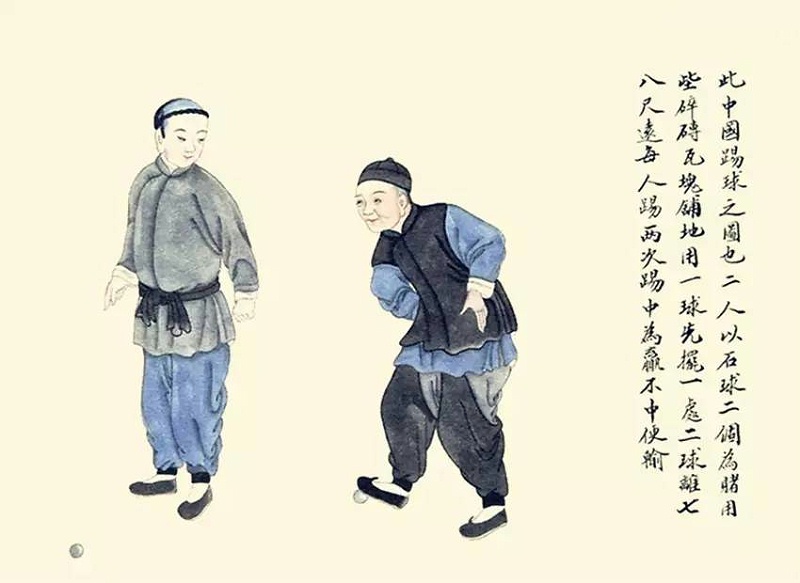 此中國踢球之圖也二人以石球二個為賭用
些碎磚瓦塊鋪地用一球先擺一處二球離七
八尺遠每人踢两次踢中為贏不中便輸